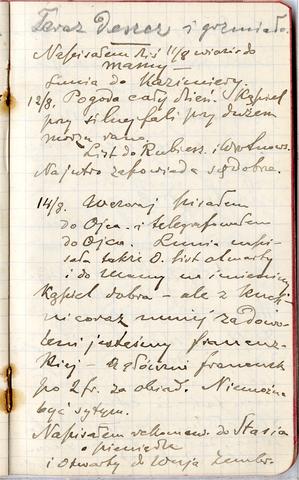 Teraz Deszcz i grzmiało.
Napisałem dziś 11/8 widokówki do
mamy
Lunia do Kazimiery.
12/8. Pogoda cały dzień. Kąpiel
przy silnej fali przy dużem
morzu rano.
List do Rubież. i
Na jutro zapowiada się dobrze.
14/8. Wczoraj pisałem
do Ojca. i telegrafowałem
do Ojca. Lunia napi-
sała także O. list otwarty
i do Mamy na imieniny
Kąpiel dobra – ale z kuch-
ni coraz mniej zadowo-
leni jesteśmy francuz-
kiej – a główni francusk
po 2 fr. za obiad. Niemożna
być sytym.
Napisałem rekomend. do Stasia
o pieniądze
i otwarty do Wuja